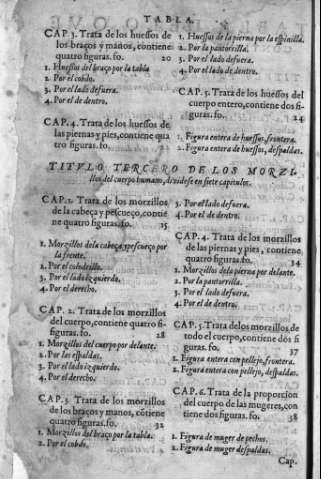 TABLA.
CAP. 3. Trata de los huessos de
los braços y manos, contiene
quatro figuras. fo. 20
1. Huessos del braço por la tabla
2. Por el cobdo.
3. Por el lado defuera.
4. Por el de dentro.
CAP. 4. Trata de los huessos de
las piernas y pies, contiene qua
tro figuras. fo.
1. Huessos de la pierna por la espinilla.
2. Por la pantorrilla.
3. Por el lado defuera.
4. Por el lado de dentro.
CAP. 5. Trata de los huessos del
cuerpo entero, contiene dos fi-
guras. fo. 24
1. Figura entera de huessos, frontera.
2. Figura entera de huessos, despaldas.
TITVLO TERCERO DE LOS MORZI-
llos del cuerpo humano, diuidese en siete capitulos.
CAP. 1. Trata de los morzillos
de la cabeça y pescueço, contie
ne quatro figuras. fo. 25
1. Morzillos de la cabeça, y pescueço por
la frente.
2. Por el colodrillo.
3. Por el lado izquierdo.
4. Por el derecho.
CAP. 2. Trata de los morzillos
del cuerpo, contiene quatro fi-
guras. fo. 28
1. Morzillos del cuerpo por delante.
2. Por las espaldas.
3. Por el lado izquierdo.
4. Por el derecho.
CAP. 3. Trata de los morzillos
de los braços y manos, cõtiene
quatro figuras. fo. 32
1. Morzillos del braço por la tabla.
2. Por el cobdo.
3. Por el lado defuera.
4. Por el de dentro.
CAP. 4. Trata de los morzillos
de las piernas y pies, contiene
quatro figuras. fo. 34
1. Morzillos de la pierna por delante.
2. Por la pantorrilla.
3. Por el lado defuera.
4. Por el de dentro.
CAP. 5. Trata de los morzillos de
todo el cuerpo, contiene dos fi
guras. fo. 37
1. Figura entera con pellejo, frontera.
2. Figura entera con pellejo, despaldas.
CAP. 6. Trata de la proporcion
del cuerpo de las mugeres, con
tiene dos figuras. fo. 38
1. Figura de muger de pechos.
2. Figura de muger despaldas.
Cap.